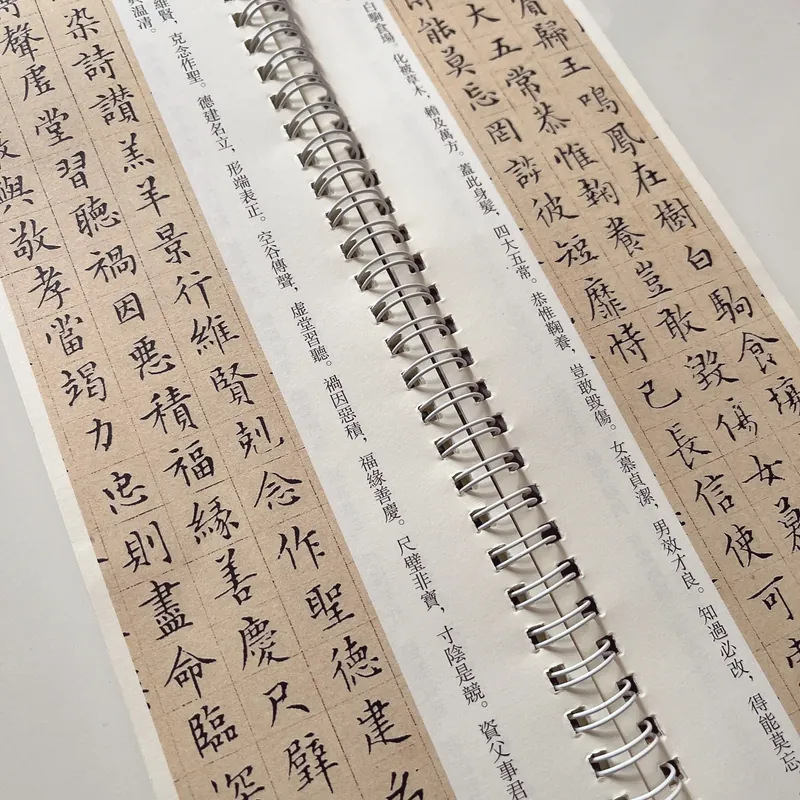 賓歸王鳴鳳在樹白駒食場
大五常恭惟鞠養豈敢毀傷女慕
得能莫忘罔談彼短靡恃己長信使可
白駒食場。化被草木，賴及萬方。蓋此身髮，四大五常。恭惟鞠養，豈敢毀傷。女慕貞潔，男效才良。知過必改，得能莫忘
維賢，克念作聖。德建名立，形端表正。空谷傳聲，虛堂習聽。禍因惡積，福緣善慶。尺璧非寶，寸陰是競。資父事君
溫清。
染詩讚羔羊景行維賢剋念作聖德建名
聲虛堂習聽禍因惡積福緣善慶尺璧
與敬孝當竭力忠則盡命臨深